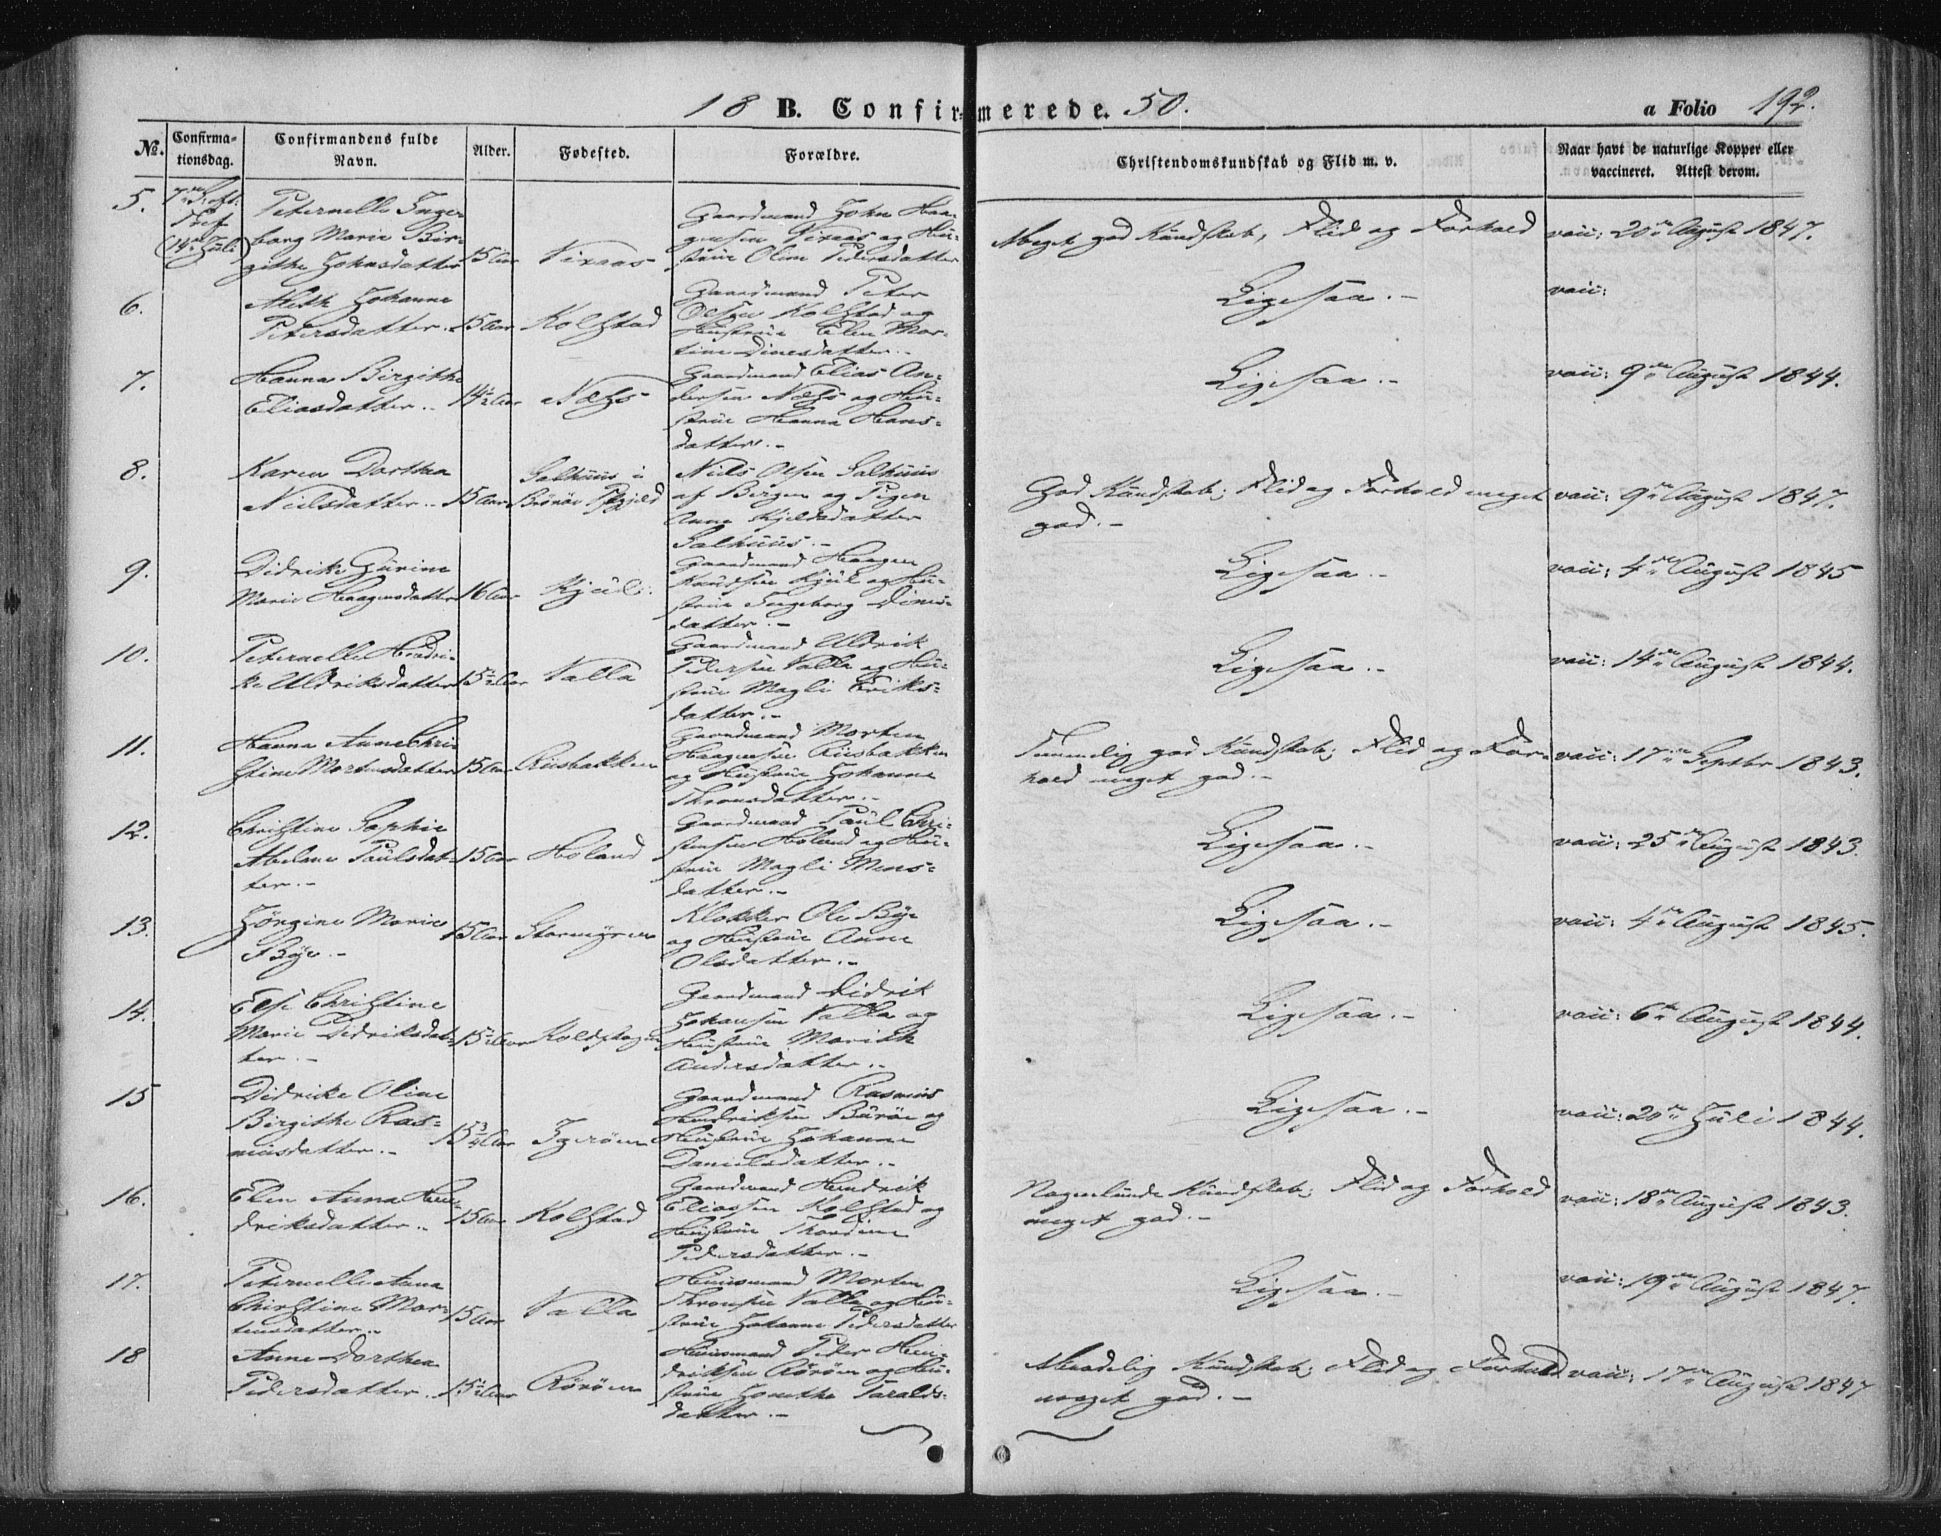 18 B. Confirmerede. 50.
a Folio 192.
No. Confirmationsdag. Confirmandens fulde Navn. Alder. Fødested. Forældre. Christendomskundskab og Flid m. v. Naar havt de naturlige Kopper eller vaccineret. Attest derom.
5. Peternelle Inge-
borg Marie Bir-
githe Johnsdatter 15 Aar
Gaardmand John Haa-
gensen og Hu-
strue Oline Pedersdatter
Meget god Kundskab, Flid og Forhold
vacc: 20de August 1847.
6. Johanne
Petersdatter. 15 Aar Kolstad
Gaardmand Peter
Olsen Kolstad og
Hustrue Elen Mar-
tine Dinesdatter.-
Ligesaa.-
vacc:
7. Hanna Birgithe
Eliasdatter.. 14½ Aar
Gaardmand Elias An-
dersen og Hu-
strue Hanna Hans-
datter.-
Ligesaa.-
vacc: 9de August 1844.
8. Karen Dorthea
Nielsdatter.. 15 Aar Salhuus i
Brönöe Pgjeld
Niels Olsen Salhuus
af Bergen og Pigen
Anne Kjeldsdatter
Salhuus.-
God Kundskab; Flid og Forhold meget
god.-
vacc: 9de August 1847.
9. Didrikke Gurine
Marie Haagensdatter 16 Aar
Gaardmand Haagen
Knudsen og Hu-
strue Ingeborg Dines-
datter.-
Ligesaa.-
vacc: 4de August 1845
10. Peternelle Hendri-
ke Uldriksdatter 15½ Aar Valla
Gaardmand Uldrik
Pedersen Valla og Hu-
strue Magli Eriks-
datter.-
Ligesaa.-
vacc: 14de August 1844.
11. Hanna Anne Chri-
stine Mortensdatter 15 Aar Ruusbakken
Gaardmand Morten
Haagensen Ruusbakken
og Hustrue Johanne
Thronsdatter.-
Temmelig god Kundskab; Flid og For-
hold meget god.-
vacc: 17de Septbr 1843.
12. Christine Sophie
Abelone Paulsdat-
ter.- 15 Aar Holand
Gaardmand Paul Chri-
stensen Holand og Hu-
strue Magli Mons-
datter.-
Ligesaa.-
vacc: 25de August 1843.
13. Jörgine Marie
Bye.- 15 Aar Stormyren
Klokker Ole Bye
og Hustrue Anne
Olsdatter.-
Ligesaa.-
vacc: 4de August 1845.
14. Else Christine
Marie Didriksdat-
ter.- 15½ Aar
Gaardmand Didrik
Johansen Valla og
Hustrue Marith
Andersdatter.-
Ligesaa.-
vacc: 6de August 1844.
15 Didrikke Oline
Birgithe Ras-
musdatter.- 15¾ Aar Igeröen
Gaardmand Rasmus
Hendriksen Buröe og
Hustrue Johanne
Danielsdatter.-
Ligesaa.-
vacc: 20de Juli 1844.
16. Elen Anna Hen-
driksdatter.. 15 Aar Kolstad
Gaardmand Hendrik
Eliassen Kolstad og
Hustrue Thordine
Pedersdatter.-
Nogenlunde Kundskab; Flid og Forhold
meget god.-
vacc: 18de August 1843.
17. Peternelle Anna
Christine Mor-
tensdatter.. 15 Aar Valla
Huusmand Morten
Thronsen Valla og Hu-
strue Johanne Pedersdatter
Ligesaa.-
vacc: 19de August 1847.
18 Anne Dorthea
Pedersdatter. 15½ Aar Röröen
Huusmand Peter Hen-
driksen Röröen og Hu-
strue Taralds-
datter.-
Maadelig Kundskab; Flid og Forhold
meget god.-
vacc: 17de August 1847